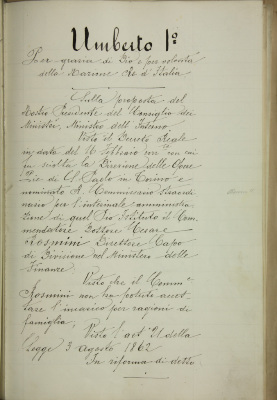 Umberto 1°
Per grazia di Dio e per volontà
della Nazione Re d'Italia
Sulla proposta del
Nostro Presidente del Consiglio dei
Ministri, Ministro dell'Interno;
Visto il Decreto Reale
in data del 16 febbraio con cui
fu sciolta la Direzione delle Ope
re Pie di S. Paolo in Torino e
nominato R. Commissario Straordi
nario per l'interinale amministra
zione di quel Pio Istituto il Com
mendatore Dottore Cesare
Rosmini Direttore Capo
di Divisione nel Ministero delle
Finanze;
Visto che il Comm.
Rosmini non ha potuto accet
tare l'incarico per ragioni di
famiglia;
Visto l'art. 21 della
legge 3 agosto 1862
In riforma di detto